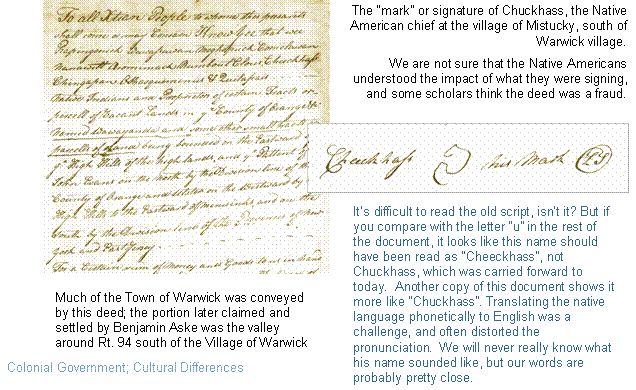 To all Xtian People to whom these presents
shall come or may Concern Know Yee that wee
Native Indians and Proprietors of certain Tracts or
parcell of Vacant Lands in yᵉ County of Orange
named Wawayanda and some other small tracts or
parcells of Land being bounded on the Eastward by
yᵉ High Hills of the highlands, and yᵉ Pattent of
John Evans on the North by the Division line of the
County of Orange and Ulster on the Westward by
High Hills to the Eastward of
South by the Division line of the Provinces of New
York and East Jersey
For a Certain sum of Money and Goods to us in hand
The "mark" or signature of Chuckhass, the Native
American chief at the village of Mistucky, south of
Warwick village.
We are not sure that the Native Americans
understood the impact of what they were signing,
and some scholars think the deed was a fraud.
Cheeckhass his Mark LS
It's difficult to read the old script, isn't it? But if
you compare with the letter "u" in the rest of
the document, it looks like this name should
have been read as "Cheeckhass", not
Chuckhass, which was carried forward to
today. Another copy of this document shows it
more like "Chuckhass". Translating the native
language phonetically to English was a
challenge, and often distorted the
pronunciation. We will never really know what
his name sounded like, but our words are
probably pretty close.
Much of the Town of Warwick was conveyed
by this deed; the portion later claimed and
settled by Benjamin Aske was the valley
around Rt. 94 south of the Village of Warwick
Colonial Government; Cultural Differences